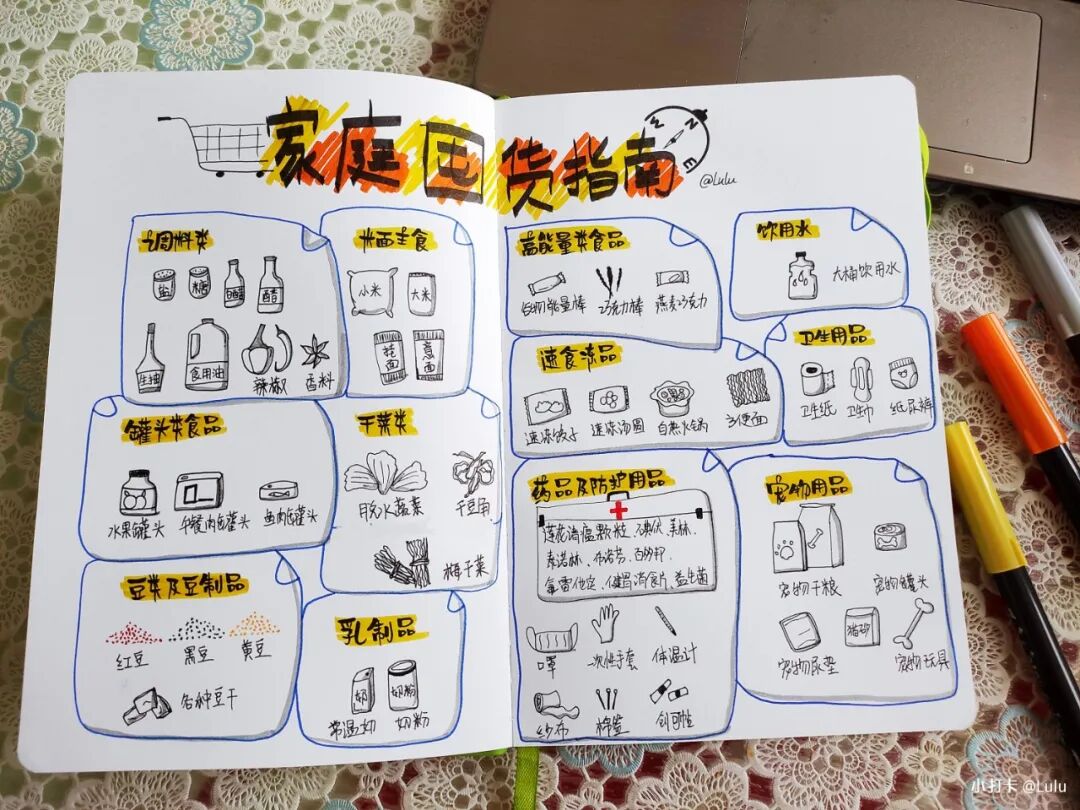 家庭囤货指南
N
E
@Lulu
调料类
盐
糖
醋
生抽
食用油
辣椒
香料
米面主食
小米
大米
挂面
意面
罐头类食品
水果罐头
午餐肉罐头
鱼肉罐头
干菜类
脱水蔬菜
干豆角
梅干菜
豆类及豆制品
红豆
黑豆
黄豆
各种豆干
乳制品
奶
奶粉
常温奶
奶粉
高能量类食品
谷物能量棒
巧克力棒
燕麦巧克力
饮用水
大桶饮用水
速食冻品
速冻饺子
速冻汤圆
自热火锅
方便面
卫生用品
卫生纸
卫生巾
纸尿裤
药品及防护用品
莲花清瘟颗粒、碘伏、美林、
泰诺林、布洛芬、百多邦、
氯雷他定、健胃消食片、益生菌
口罩
一次性手套
体温计
纱布
棉签
创可贴
宠物用品
宠物干粮
宠物罐头
猫砂
宠物尿垫
宠物玩具
小打卡 @Lulu